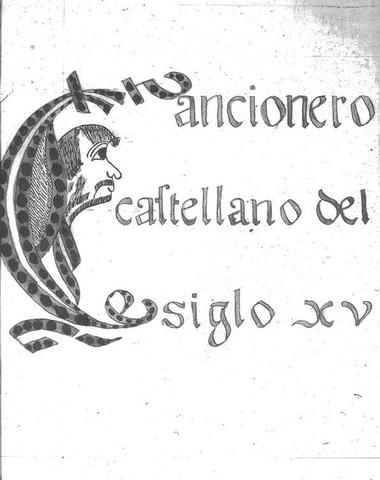 Cancionero
castellano del
siglo xv